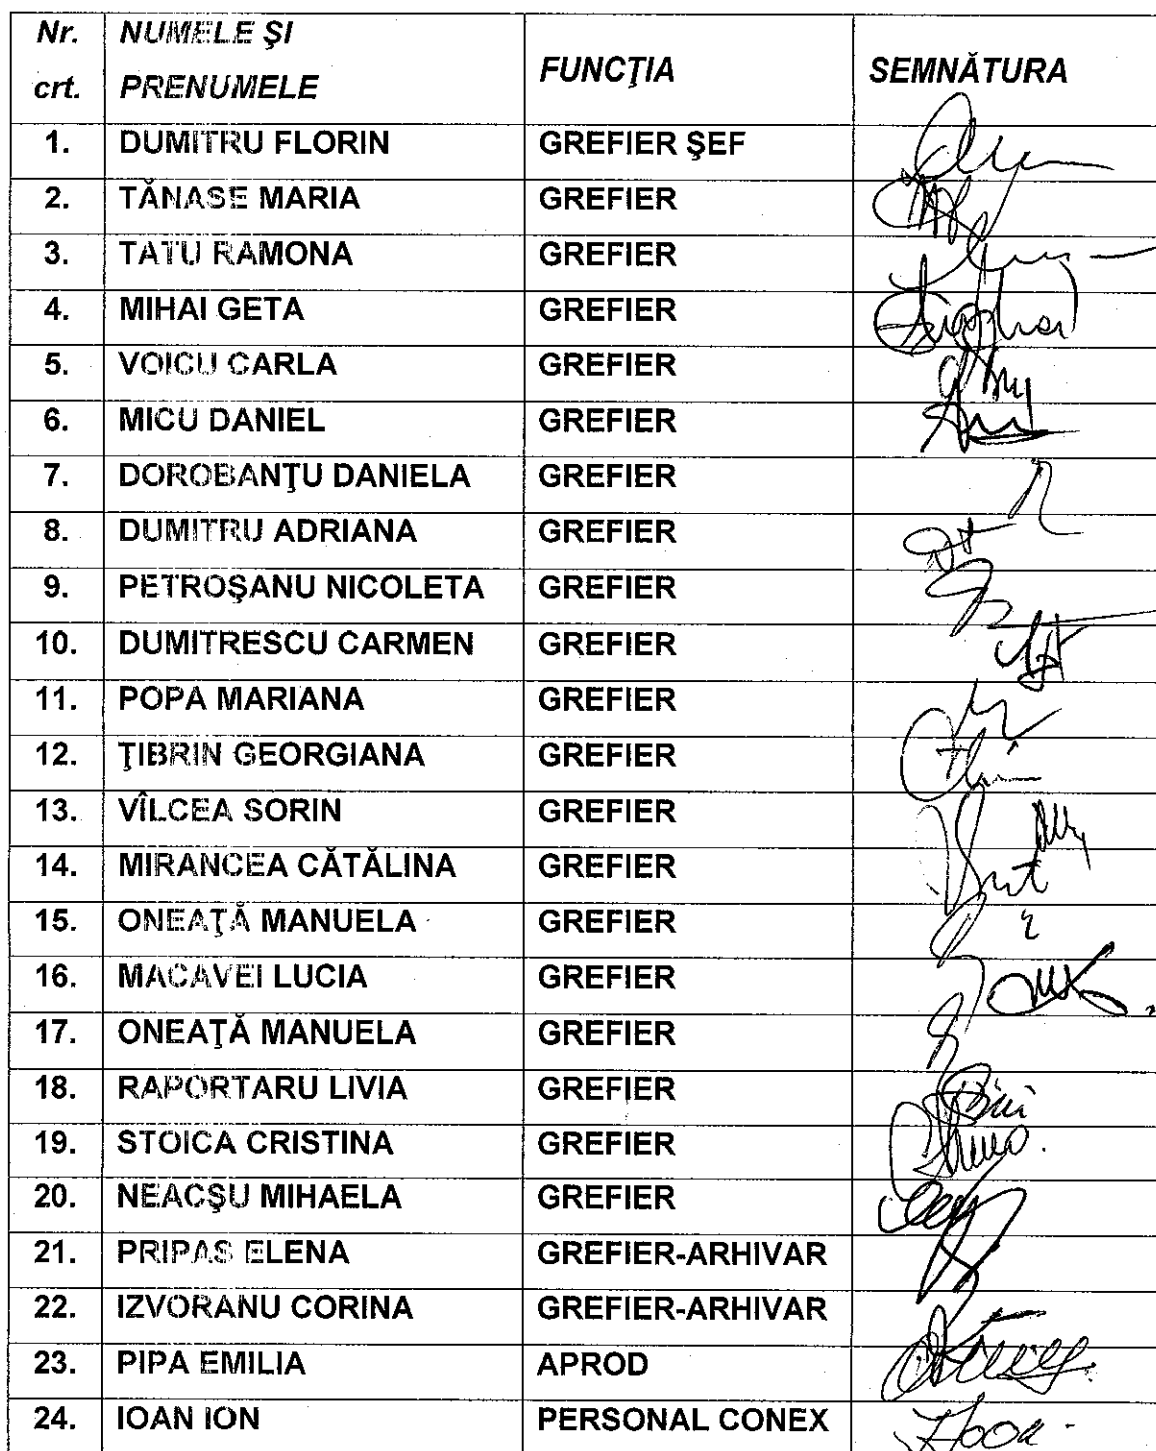 Nr. crt. NUMELE ŞI PRENUMELE FUNCŢIA SEMNĂTURA
1. DUMITRU FLORIN GREFIER ŞEF
2. TĂNASE MARIA GREFIER
3. TATU RAMONA GREFIER
4. MIHAI GETA GREFIER
5. VOICU CARLA GREFIER
6. MICU DANIEL GREFIER
7. DOROBANŢU DANIELA GREFIER
8. DUMITRU ADRIANA GREFIER
9. PETROŞANU NICOLETA GREFIER
10. DUMITRESCU CARMEN GREFIER
11. POPA MARIANA GREFIER
12. ŢIBRIN GEORGIANA GREFIER
13. VÎLCEA SORIN GREFIER
14. MIRANCEA CĂTĂLINA GREFIER
15. ONEAŢĂ MANUELA GREFIER
16. MACAVEI LUCIA GREFIER
17. ONEAŢĂ MANUELA GREFIER
18. RAPORTARU LIVIA GREFIER
19. STOICA CRISTINA GREFIER
20. NEACŞU MIHAELA GREFIER
21. PRIPAS ELENA GREFIER-ARHIVAR
22. IZVORANU CORINA GREFIER-ARHIVAR
23. PIPA EMILIA APROD
24. IOAN ION PERSONAL CONEX